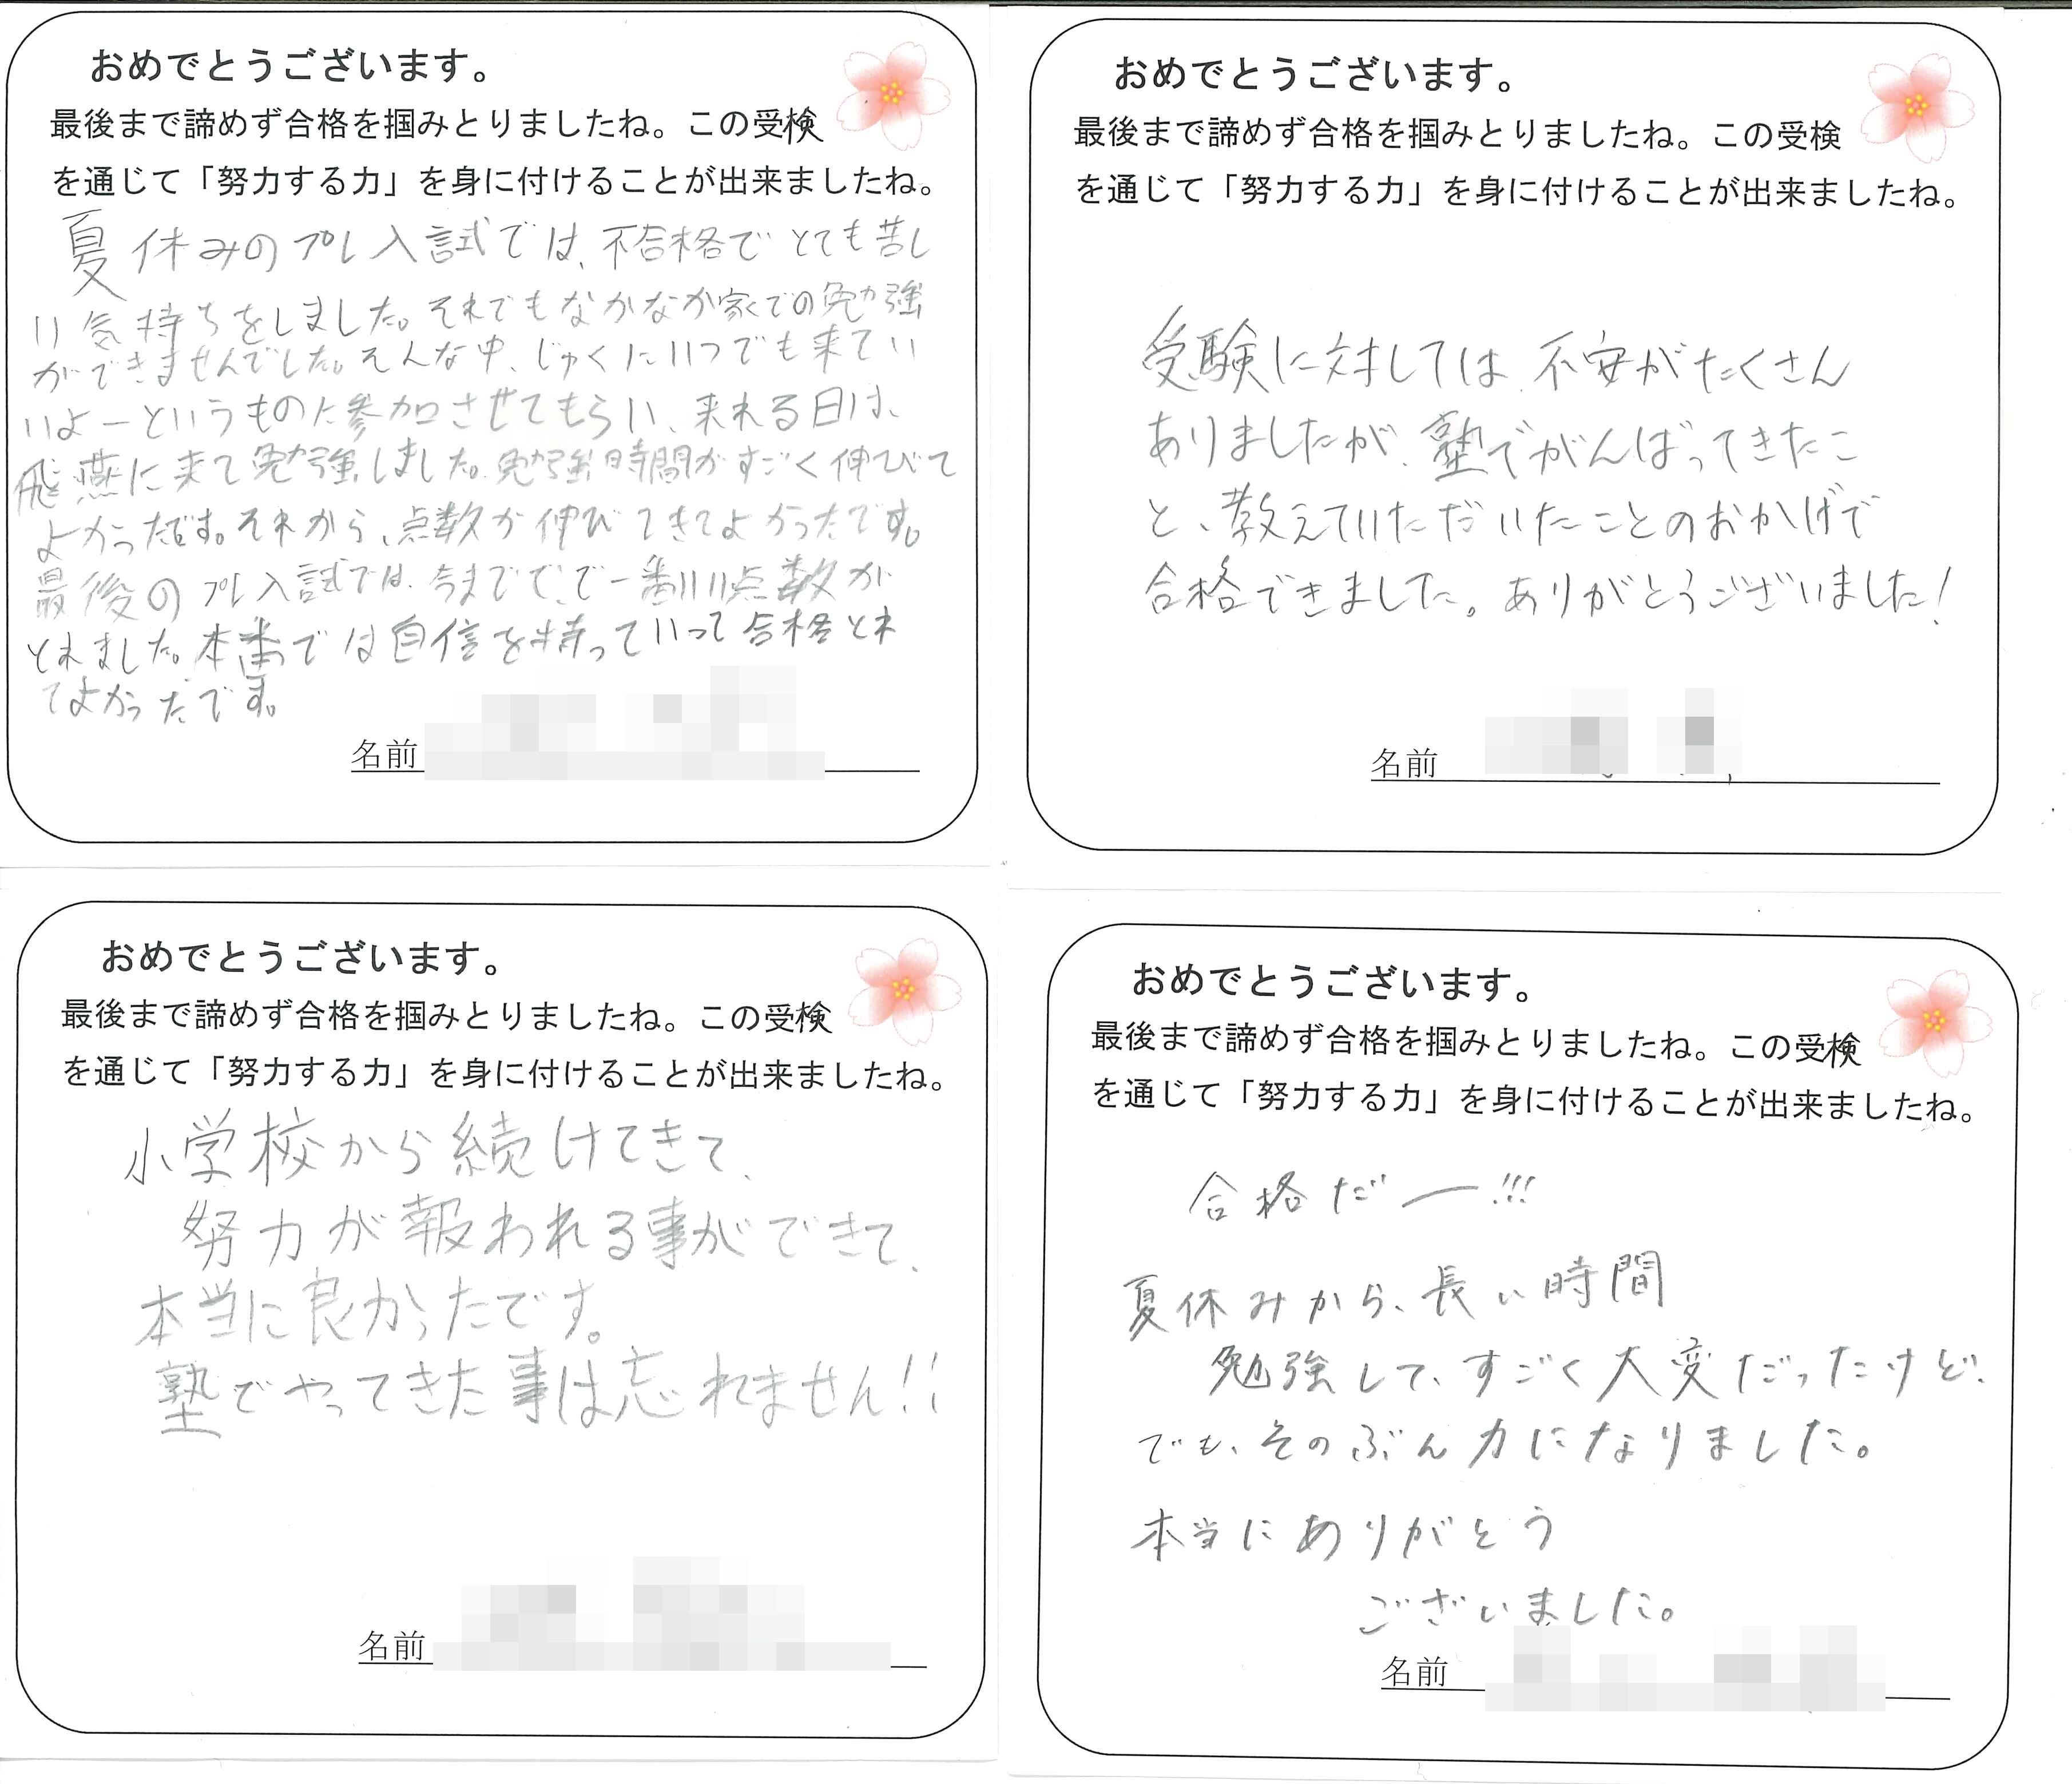 おめでとうございます。
最後まで諦めず合格を掴みとりましたね。この受検
を通じて「努力する力」を身に付けることが出来ましたね。
夏休みのプレ入試では、不合格でとても苦し
い気持ちをしました。それでもなかなか家での勉強
ができませんでした。そんな中、じゅくにいつでも来てい
いよーというものに参加させてもらい、来れる日は、
飛燕に来て勉強しました。勉強時間がすごく伸びて
よかったです。それから、点数が伸びてきてよかったです。
最後のプレ入試では、今までで、で一番いい点数が
とれました。本番では自信を持っていって合格とれ
てよかったです。
名前
おめでとうございます。
最後まで諦めず合格を掴みとりましたね。この受検
を通じて「努力する力」を身に付けることが出来ましたね。
受験に対しては、不安がたくさん
ありましたが、塾でがんばってきたこ
と、教えていただいたことのおかげで
合格できました。ありがとうございました!
名前
おめでとうございます。
最後まで諦めず合格を掴みとりましたね。この受検
を通じて「努力する力」を身に付けることが出来ましたね。
小学校から続けてきて、
努力が報われる事ができて、
本当に良かったです。
塾でやってきた事は忘れません!!
名前
おめでとうございます。
最後まで諦めず合格を掴みとりましたね。この受検
を通じて「努力する力」を身に付けることが出来ましたね。
合格だー!!!
夏休みから、長い時間
勉強して、すごく大変だったけど、
でも、そのぶん力になりました。
本当にありがとう
ございました。
名前